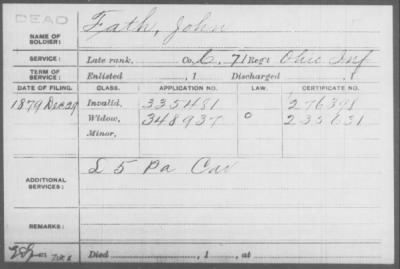 DEAD
NAME OF SOLDIER: Fath, John
SERVICE: Late rank, Co. C. 71 Reg't Ohio Inf
TERM OF SERVICE: Enlisted , 1 Discharged , 1
DATE OF FILING. CLASS. APPLICATION NO. LAW. CERTIFICATE NO.
1879 Dec 29 Invalid, 335481 276898
Widow, 348937 0 235631
Minor,
ADDITIONAL SERVICES: L 5 Pa Cav
REMARKS:
Died , 1 , at